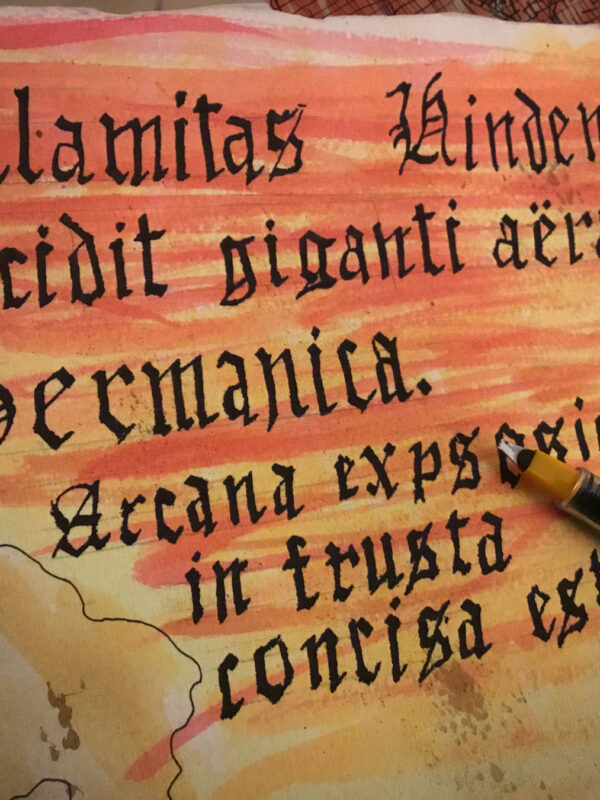 alamitas Hinden
cidit giganti aëra
Germanica.
Arcana expsosi
in frusta
concisa est